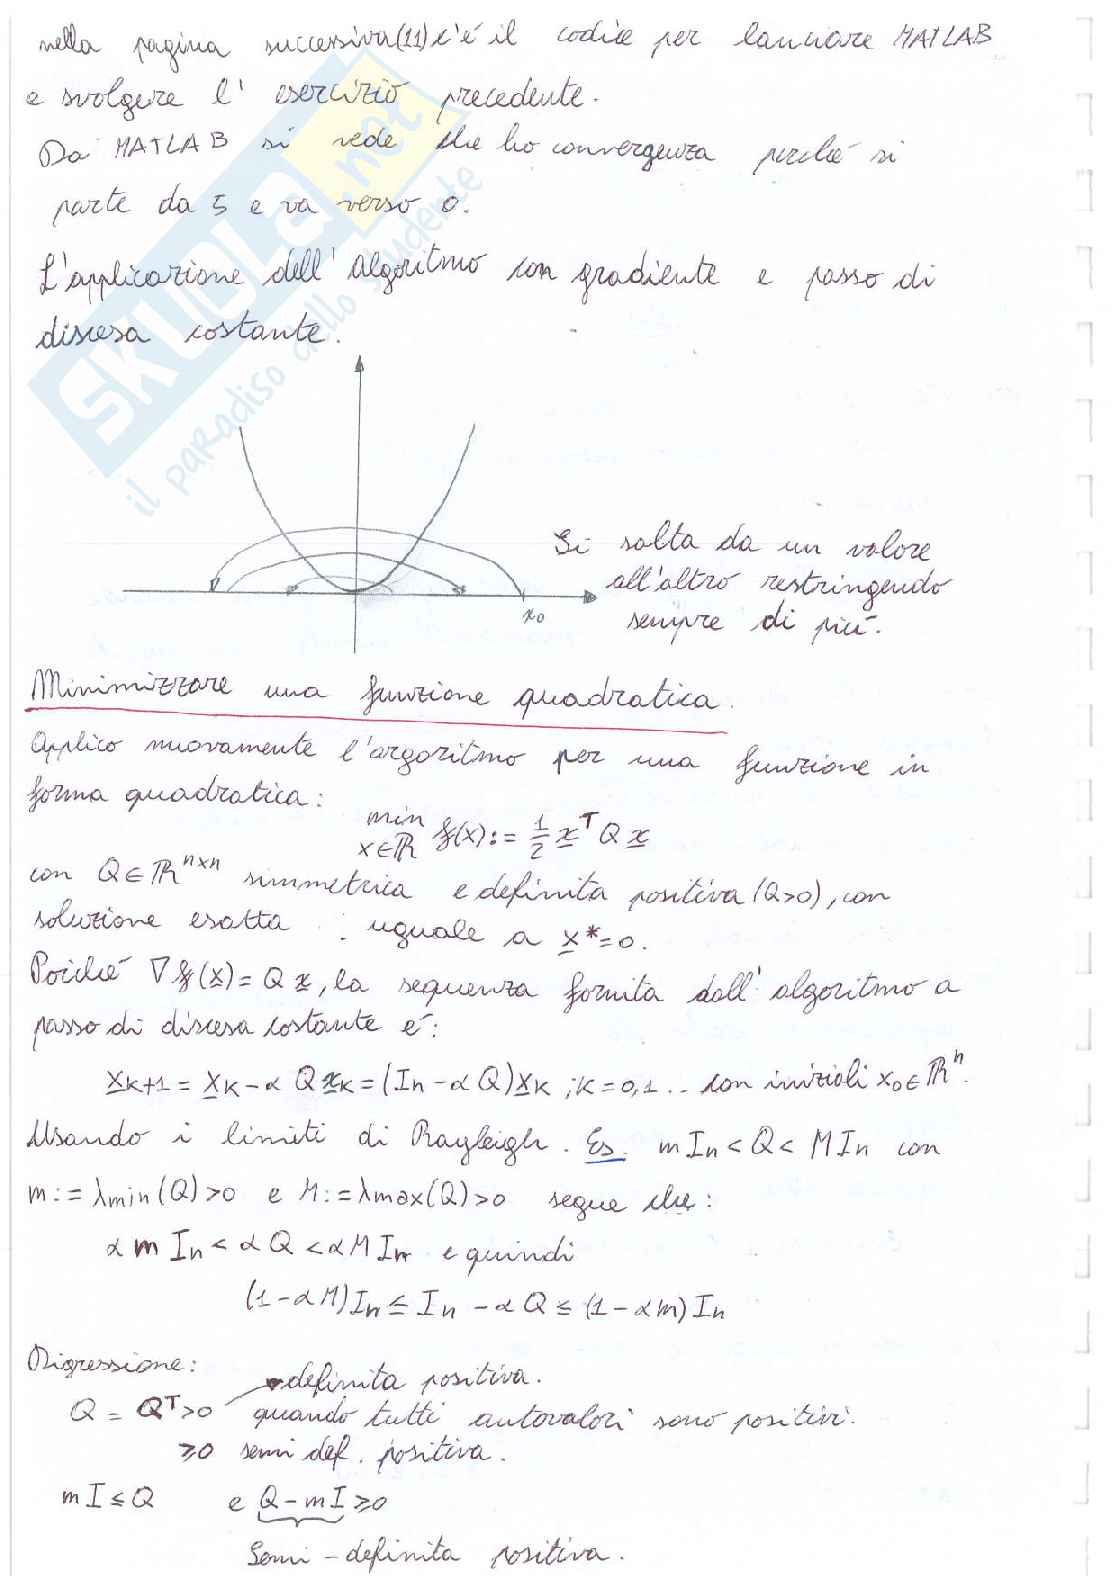 nella pagina successiva(11) c'è il codice per lanciare MATLAB
e svolgere l' esercizio precedente.
Da MATLAB si vede che ho convergenza perché si
parte da 5 e va verso 0.
L'applicazione dell' algoritmo con gradiente e passo di
discesa costante.
SKUOLA.net
il paradiso dello studente
Si salta da un valore
all'altro restringendo
sempre di più.
x0
Minimizzare una funzione quadratica.
Applico nuovamente l'argoritmo per una funzione in
forma quadratica:
min x∈ℝ f(x):= 1/2 x^T Q x
con Q∈ℝ^n×n simmetrica e definita positiva (Q>0), con
soluzione esatta : uguale a x*=0.
Poiché ∇f(x)= Q x, la sequenza fornita dall' algoritmo a
passo di discesa costante é:
xk+1 = xk-α Q xk=(In-αQ)xk ;k=0,1.. con iniziali x0∈ℝ^n.
Usando i limiti di Rayleigh. Es. mIn<Q<MIn con
m:=λmin(Q)>0 e M:=λmax(Q)>0 segue che:
αmIn<αQ<αMIn e quindi
(1-αM)In≤In-αQ≤(1-αm)In
Digressione:
definita positiva.
Q = Q^T>0 quando tutti autovalori sono positivi.
≥0 semi def. positiva.
mI≤Q e Q-mI≥0
Semi-definita positiva.